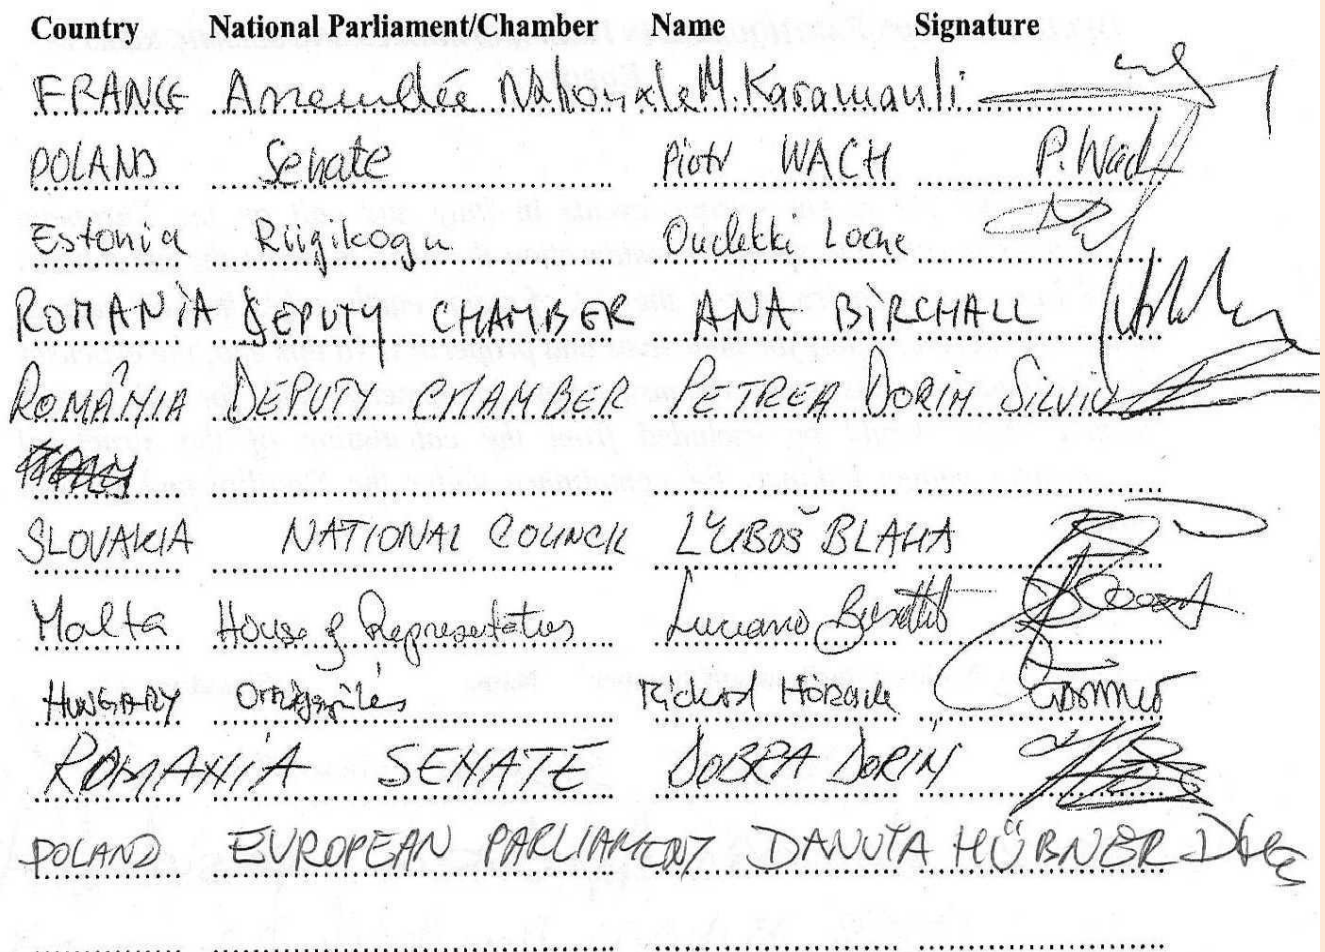 Country National Parliament/Chamber Name Signature
FRANCE Assemblée Nationale M. Karamanli
POLAND Senate Piotr WACH P. Wach
Estonia Riigikogu Loone
ROMANIA DEPUTY CHAMBER ANA BIRCHALL
ROMÂNIA DEPUTY CHAMBER PETREA DORIN SILVIU
SLOVAKIA NATIONAL COUNCIL ĽUBOŠ BLAHA
Malta House of Representatives Luciano Busuttil
HUNGARY Országgyűlés Richard Hörcsik
ROMANIA SENATE DOBRA DORIN
POLAND EUROPEAN PARLIAMENT DANUTA HÜBNER